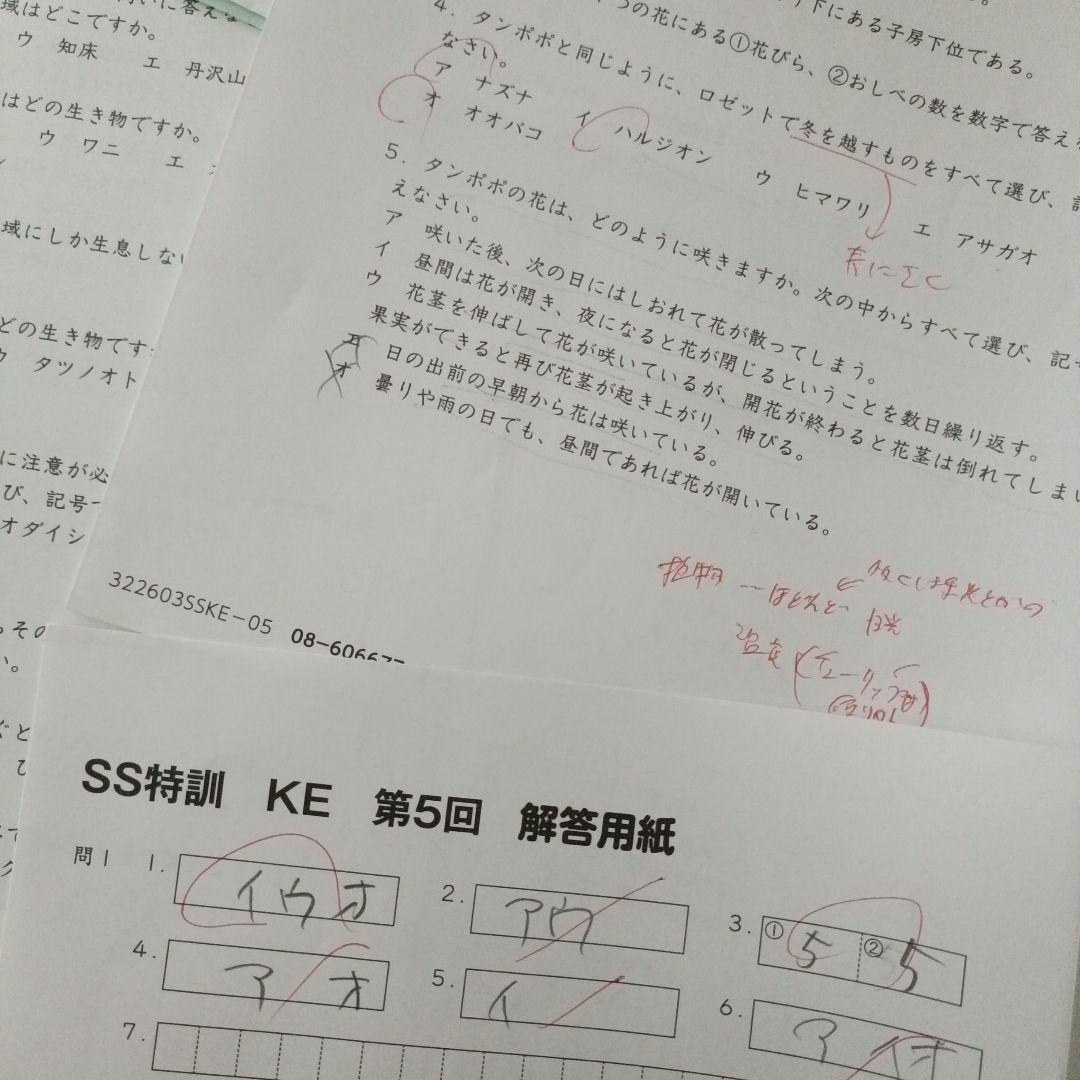 域はどこですか。
ウ 知床 エ 丹沢山
はどの生き物ですか。
ウ ワニ エ
域にしか生息しな
どの生き物です
ウ タツノオト
に注意が必
び、記号
オダイシ
つの花にある①花びら、②おしべの数を数字で答え
下にある子房下位である。
4. タンポポと同じように、ロゼットで冬を越すものをすべて選び、
なさい。
ア ナズナ イ ハルジオン ウ ヒマワリ エ アサガオ
オ オオバコ
5. タンポポの花は、どのように咲きますか。次の中からすべて選び、記号
えなさい。
ア 咲いた後、次の日にはしおれて花が散ってしまう。
イ 昼間は花が開き、夜になると花が閉じるということを数日繰り返す。
ウ 花茎を伸ばして花が咲いているが、開花が終わると花茎は倒れてしまい
果実ができると再び花茎が起き上がり、伸びる。
エ 日の出前の早朝から花は咲いている。
オ 曇りや雨の日でも、昼間であれば花が開いている。
植物 ーほとんど 日光
温度
322603SSKE-05 08-60667
SS特訓 KE 第5回 解答用紙
問1 1. イウオ 2. アウ 3. ① 5 ② 5
4. ア オ 5. イ 6. ア イオ
7.